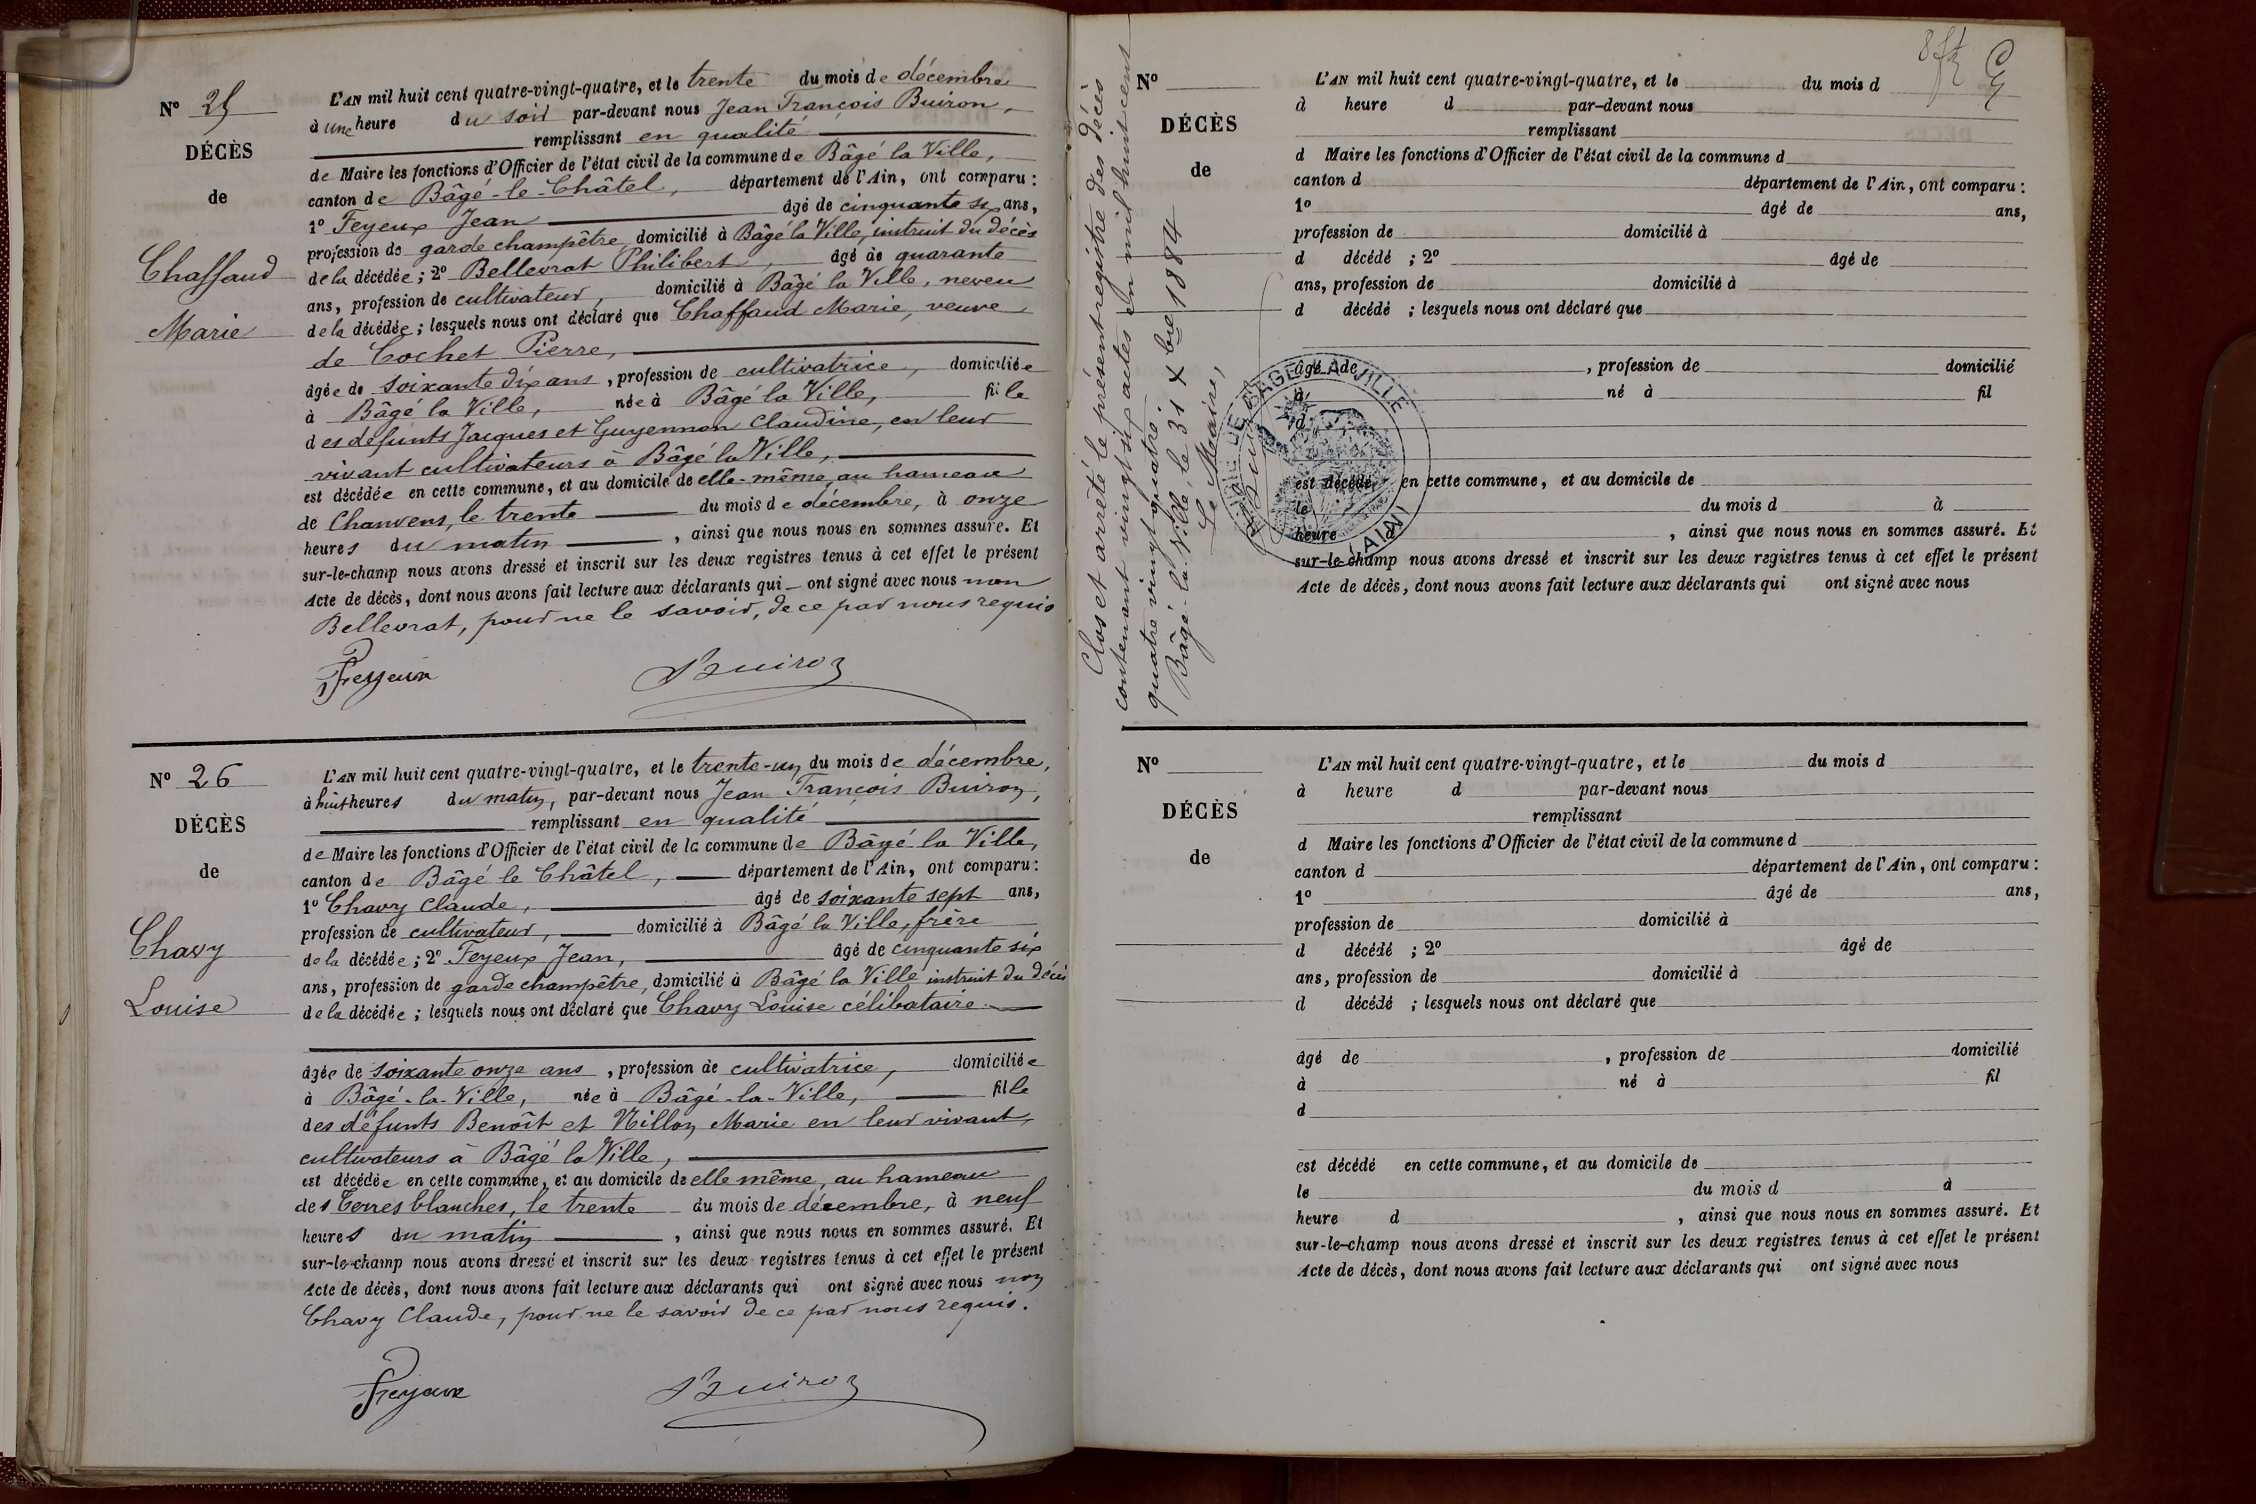 N° 25
DÉCÈS
de
Chaffaud
Marie
L'AN mil huit cent quatre-vingt-quatre, et le trente du mois de décembre
à une heure du soir par-devant nous Jean François Buiron,
remplissant en qualité
de Maire les fonctions d'Officier de l'état civil de la commune de Bâgé la Ville,
canton de Bâgé-le-Châtel, département de l'Ain, ont comparu :
1° Feyeux Jean âgé de cinquante six ans,
profession de garde champêtre, domicilié à Bâgé la Ville, instruit du décès
de la décédée ; 2° Bellevrat Philibert, âgé de quarante
ans, profession de cultivateur, domicilié à Bâgé la Ville, neveu
de la décédée ; lesquels nous ont déclaré que Chaffaud Marie, veuve
de Cochet Pierre,
âgée de soixante dix ans, profession de cultivatrice, domiciliée
à Bâgé la Ville, née à Bâgé la Ville, fille
des défunts Jacques et Guyennon Claudine, en leur
vivant cultivateurs à Bâgé la Ville,
est décédée en cette commune, et au domicile de elle-même, au hameau
de Chanvens, le trente du mois de décembre, à onze
heures du matin, ainsi que nous nous en sommes assuré. Et
sur-le-champ nous avons dressé et inscrit sur les deux registres tenus à cet effet le présent
Acte de décès, dont nous avons fait lecture aux déclarants qui ont signé avec nous non
Bellevrat, pour ne le savoir, de ce par nous requis
Feyeux Buiron
N° 26
DÉCÈS
de
Chavy
Louise
L'AN mil huit cent quatre-vingt-quatre, et le trente-un du mois de décembre,
à huit heures du matin, par-devant nous Jean François Buiron,
remplissant en qualité
de Maire les fonctions d'Officier de l'état civil de la commune de Bâgé la Ville,
canton de Bâgé le Châtel, département de l'Ain, ont comparu :
1° Chavy Claude, âgé de soixante sept ans,
profession de cultivateur, domicilié à Bâgé la Ville, frère
de la décédée ; 2° Feyeux Jean, âgé de cinquante six
ans, profession de garde champêtre, domicilié à Bâgé la Ville instruit du décès
de la décédée ; lesquels nous ont déclaré que Chavy Louise célibataire
âgée de soixante onze ans, profession de cultivatrice, domiciliée
à Bâgé-la-Ville, née à Bâgé-la-Ville, fille
des défunts Benoît et Nillon Marie en leur vivant
cultivateurs à Bâgé la Ville,
est décédée en cette commune, et au domicile de elle même, au hameau
des Terres blanches, le trente du mois de décembre, à neuf
heures du matin, ainsi que nous nous en sommes assuré. Et
sur-le-champ nous avons dressé et inscrit sur les deux registres tenus à cet effet le présent
Acte de décès, dont nous avons fait lecture aux déclarants qui ont signé avec nous non
Chavy Claude, pour ne le savoir de ce par nous requis.
Feyeux Buiron
Clos et arrêté le présent registre des décès
contenant vingt-six actes en mil huit cent
quatre vingt quatre.
Bâgé-la-Ville, le 31 Xbre 1884
Le Maire,
Buiron
MAIRIE DE BAGÉ LA VILLE
(AIN)
N°
DÉCÈS
de
L'AN mil huit cent quatre-vingt-quatre, et le du mois d
à heure d par-devant nous
remplissant
d Maire les fonctions d'Officier de l'état civil de la commune d
canton d département de l'Ain, ont comparu :
1° âgé de ans,
profession de domicilié à
d décédé ; 2° âgé de
ans, profession de domicilié à
d décédé ; lesquels nous ont déclaré que
âgé de , profession de domicilié
à né à fil
d
est décédé en cette commune, et au domicile de
le du mois d à
heure d , ainsi que nous nous en sommes assuré. Et
sur-le-champ nous avons dressé et inscrit sur les deux registres tenus à cet effet le présent
Acte de décès, dont nous avons fait lecture aux déclarants qui ont signé avec nous
N°
DÉCÈS
de
L'AN mil huit cent quatre-vingt-quatre, et le du mois d
à heure d par-devant nous
remplissant
d Maire les fonctions d'Officier de l'état civil de la commune d
canton d département de l'Ain, ont comparu :
1° âgé de ans,
profession de domicilié à
d décédé ; 2° âgé de
ans, profession de domicilié à
d décédé ; lesquels nous ont déclaré que
âgé de , profession de domicilié
à né à fil
d
est décédé en cette commune, et au domicile de
le du mois d à
heure d , ainsi que nous nous en sommes assuré. Et
sur-le-champ nous avons dressé et inscrit sur les deux registres tenus à cet effet le présent
Acte de décès, dont nous avons fait lecture aux déclarants qui ont signé avec nous